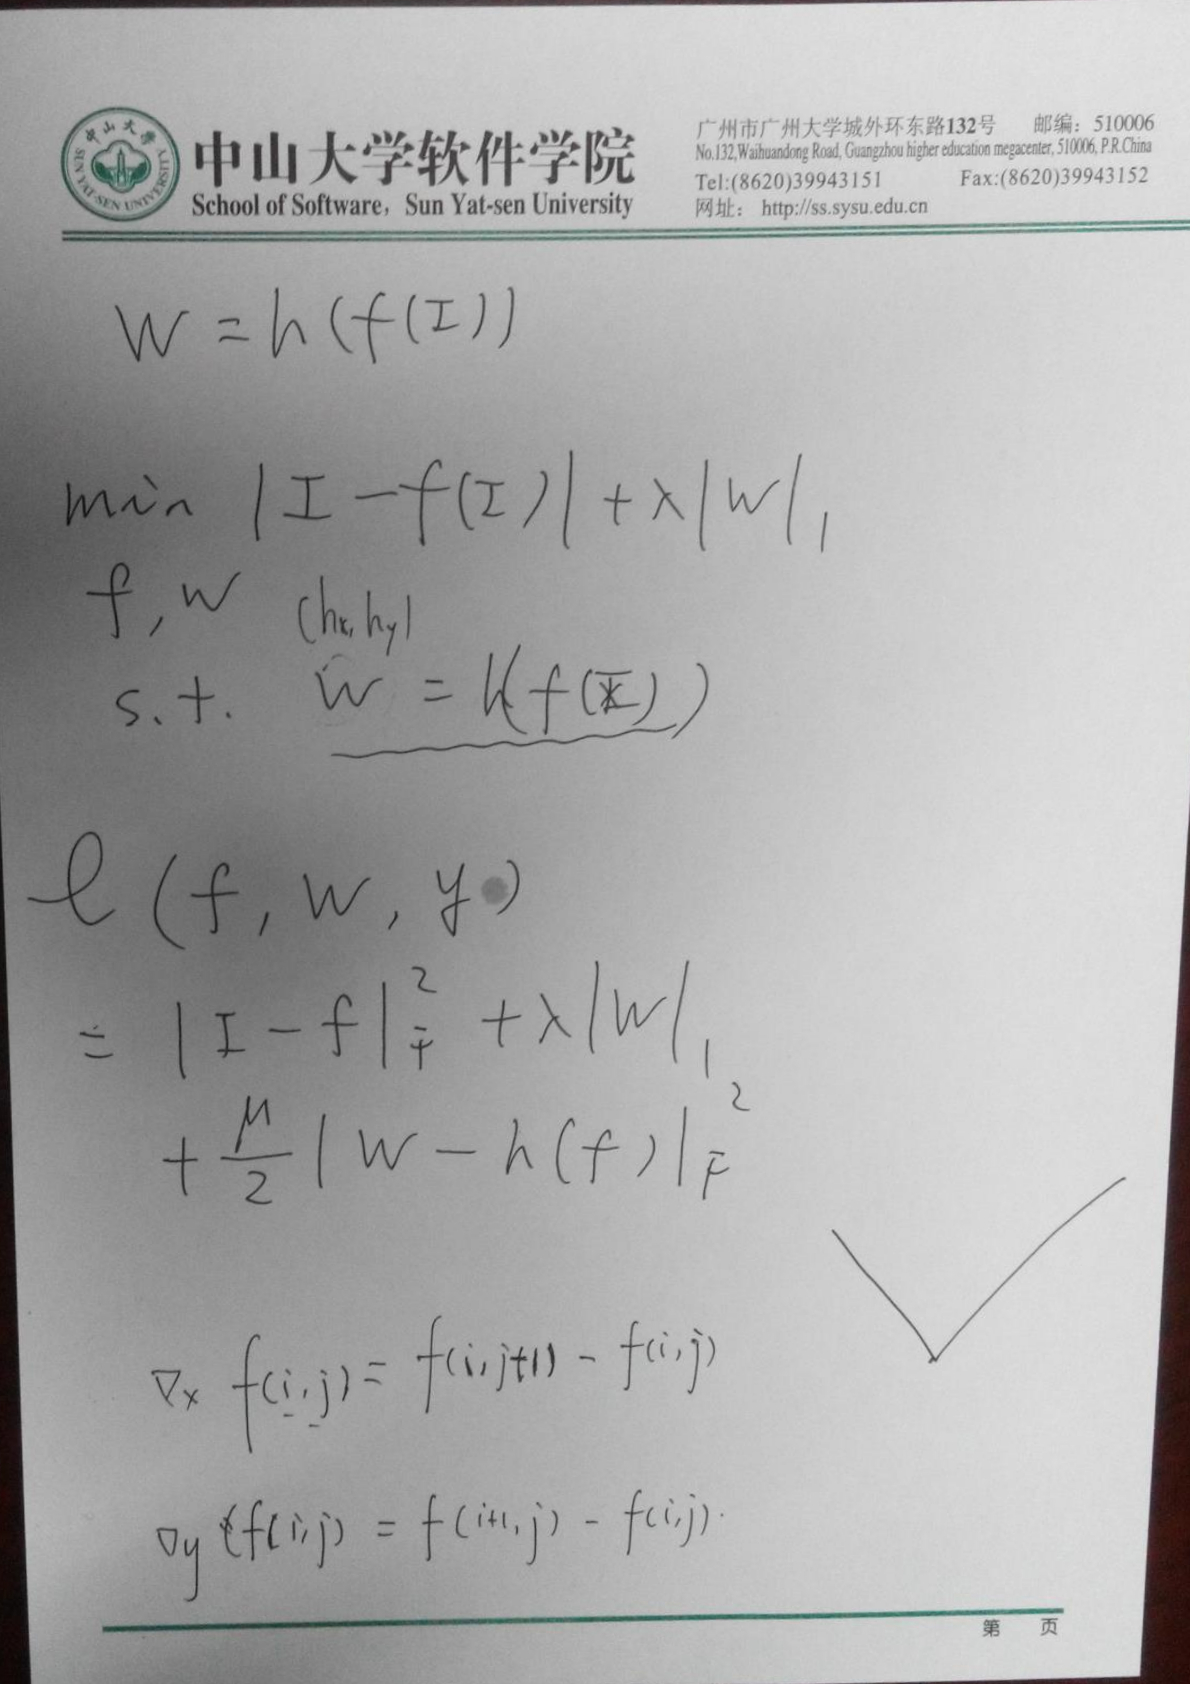 中山大学
SUN YAT-SEN UNIVERSITY
中山大学软件学院
School of Software, Sun Yat-sen University
广州市广州大学城外环东路132号 邮编: 510006
No.132,Waihuandong Road, Guangzhou higher education megacenter, 510006, P.R.China
Tel:(8620)39943151 Fax:(8620)39943152
网址: http://ss.sysu.edu.cn
W = h(f(I))
min |I - f(I)| + λ|W|₁
f, W (hx, hy)
s.t. W = h(f(I))
ℓ(f, W, y)
= |I - f|_F^2 + λ|W|₁
+ μ/2 |W - h(f)|_F^2
∇x f(i,j) = f(i,j+1) - f(i,j)
∇y f(i,j) = f(i+1,j) - f(i,j).
第 页